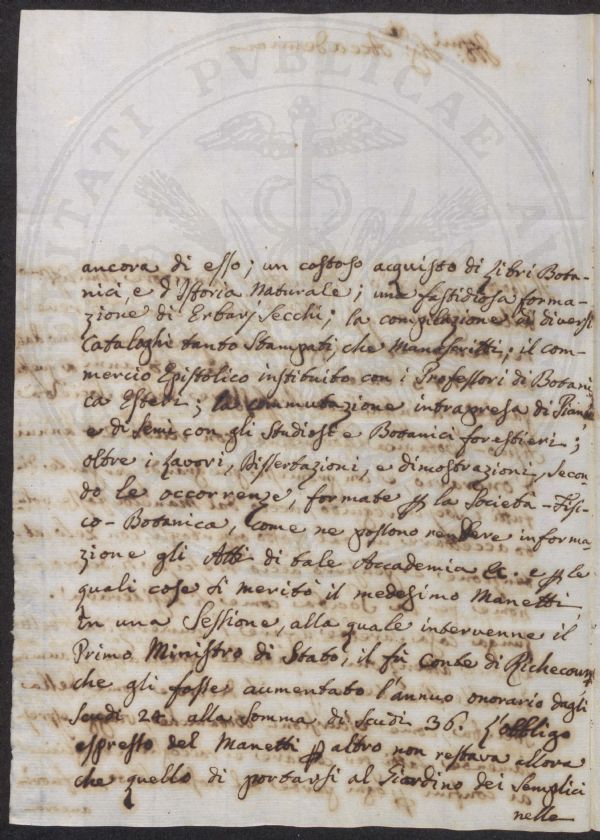 ancora di esso; un costoso acquisto di Libri Bota-
nici, e d'Istoria Naturale; una fastidiosa forma-
zione di Erbarj Secchi; la compilazione di diversi
Cataloghi tanto Stampati, che Manoscritti; il com-
mercio Epistolico instituito con i Professori di Botani-
ca Esteri; la commutazione intrapresa di Piante
e di Semi con gli Studiosi e Botanici forestieri;
oltre i Lavori, Dissertazioni, e dimostrazioni, secon-
do le occorrenze, formate p la Società-Fisi-
co-Botanica, Come ne possono rendere informa-
zione gli Atti di tale Accademia &. e p le
quali cose si meritò il medesimo Manetti,
in una Sessione, alla quale intervenne il
Primo Ministro di Stato, il fù Conte di Richecourt,
che gli fosse aumentato l'annuo onorario dagli
Scudi 24. alla somma di Scudi 36. L'obbligo
espresso del Manetti p altro non restava allora
che quello di portarsi al Giardino dei Semplici
nelle
UTILITATI PVBLICAE